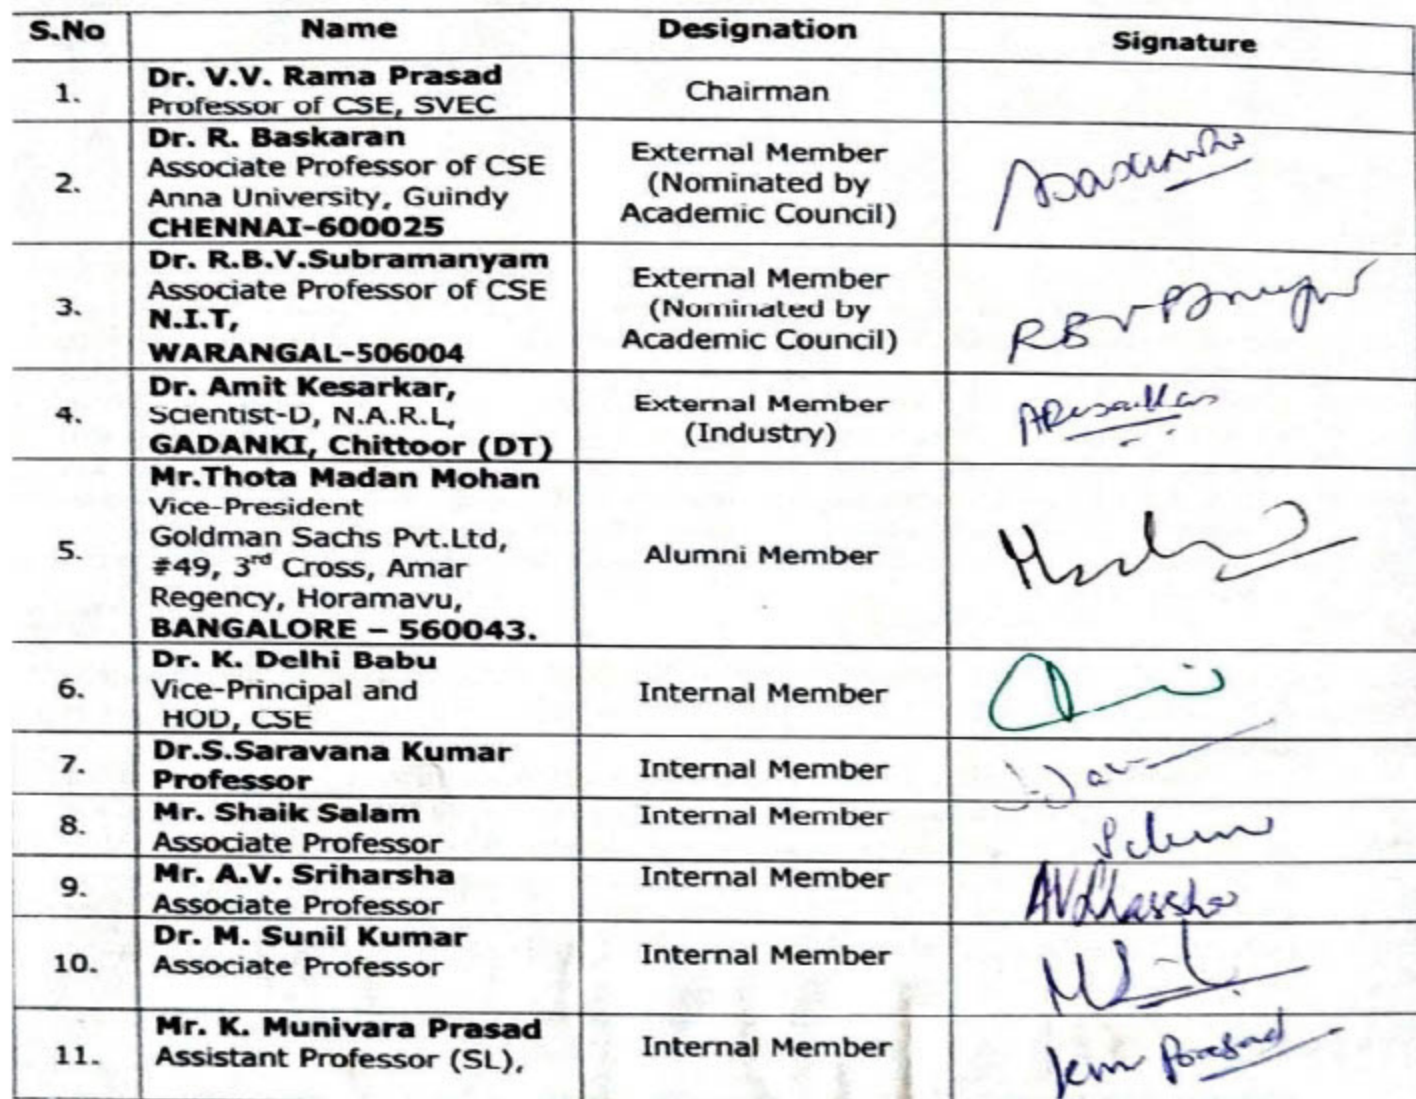 S.No Name Designation Signature
1. Dr. V.V. Rama Prasad Chairman
Professor of CSE, SVEC
2. Dr. R. Baskaran
Associate Professor of CSE
Anna University, Guindy
CHENNAI-600025
External Member
(Nominated by
Academic Council)
3. Dr. R.B.V.Subramanyam
Associate Professor of CSE
N.I.T,
WARANGAL-506004
External Member
(Nominated by
Academic Council)
4. Dr. Amit Kesarkar,
Scientist-D, N.A.R.L,
GADANKI, Chittoor (DT)
External Member
(Industry)
5. Mr.Thota Madan Mohan
Vice-President
Goldman Sachs Pvt.Ltd,
#49, 3rd Cross, Amar
Regency, Horamavu,
BANGALORE – 560043.
Alumni Member
6. Dr. K. Delhi Babu
Vice-Principal and
HOD, CSE
Internal Member
7. Dr.S.Saravana Kumar
Professor
Internal Member
8. Mr. Shaik Salam
Associate Professor
Internal Member
9. Mr. A.V. Sriharsha
Associate Professor
Internal Member
10. Dr. M. Sunil Kumar
Associate Professor
Internal Member
11. Mr. K. Munivara Prasad
Assistant Professor (SL),
Internal Member